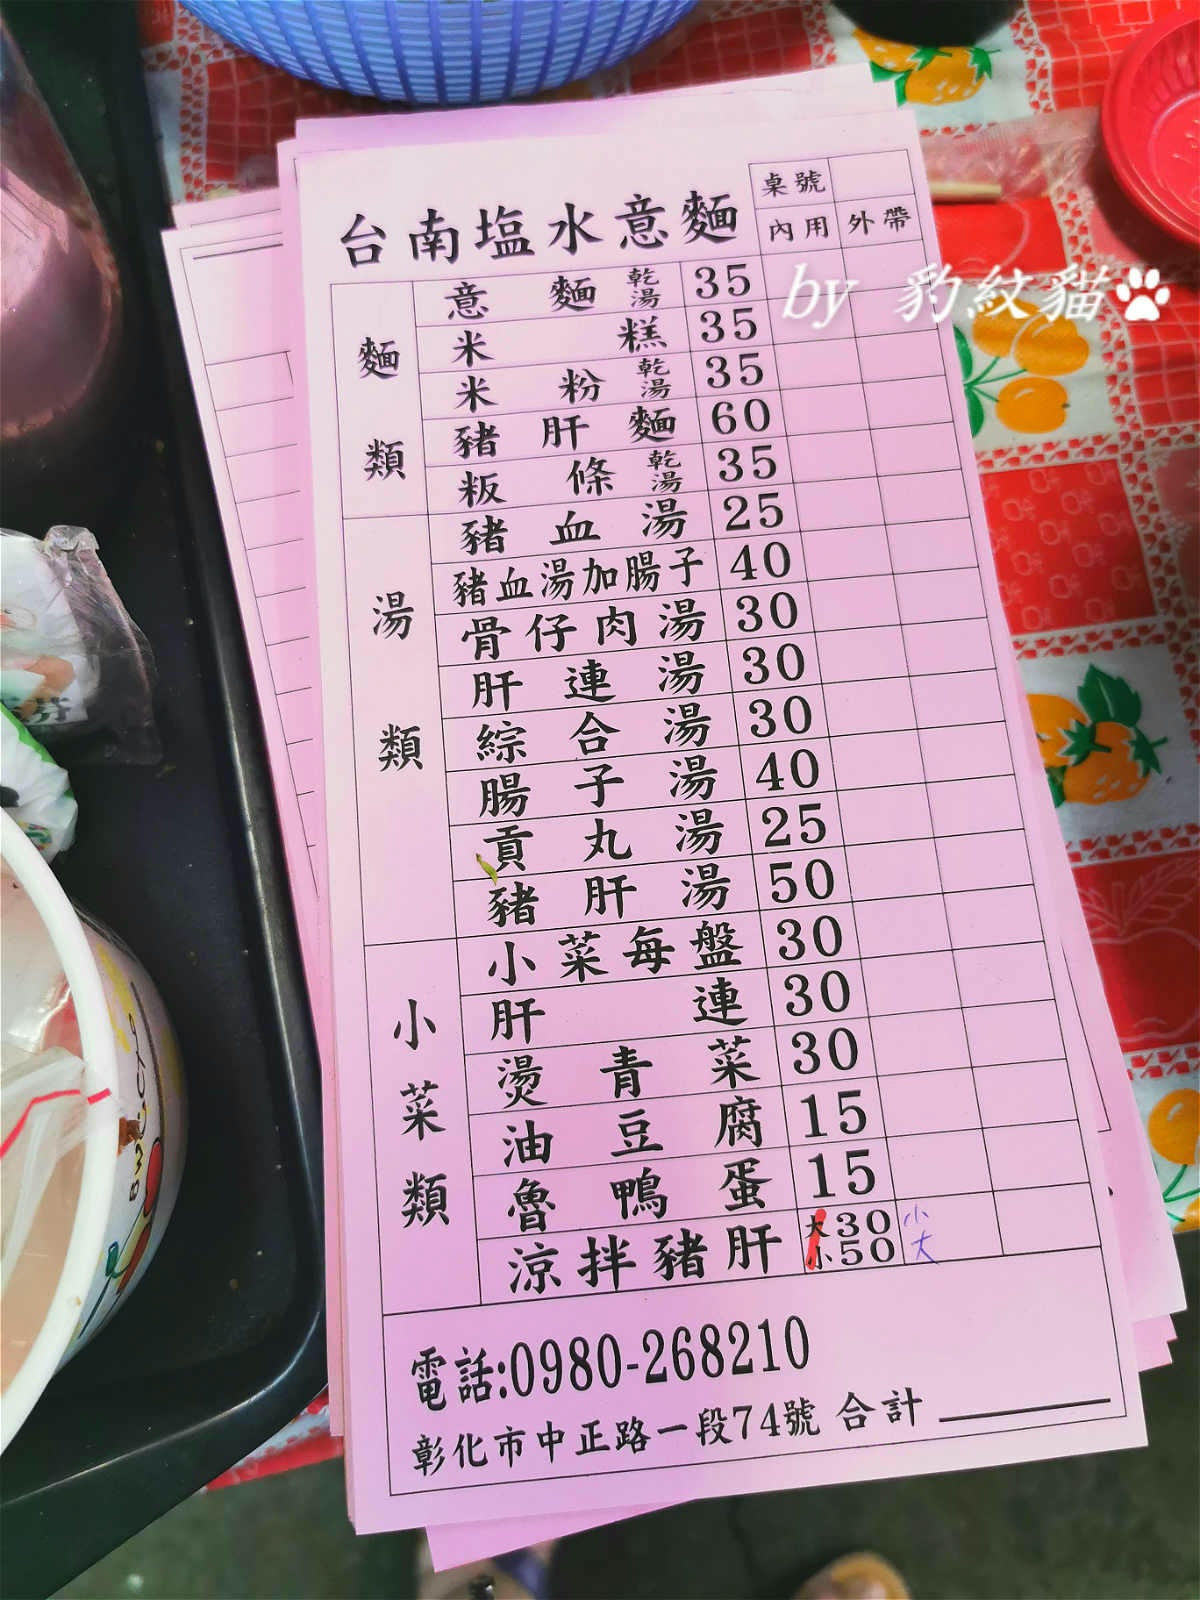 台南塩水意麵
桌號
內用 外帶
by 豹紋貓
麵類
意麵 乾湯 35
米糕 35
米粉 乾湯 35
豬肝麵 60
粄條 乾湯 35
湯類
豬血湯 25
豬血湯加腸子 40
骨仔肉湯 30
肝連湯 30
綜合湯 30
腸子湯 40
貢丸湯 25
豬肝湯 50
小菜類
小菜每盤 30
肝連 30
燙青菜 30
油豆腐 15
魯鴨蛋 15
涼拌豬肝 大30 小
小50 大
電話:0980-268210
彰化市中正路一段74號 合計